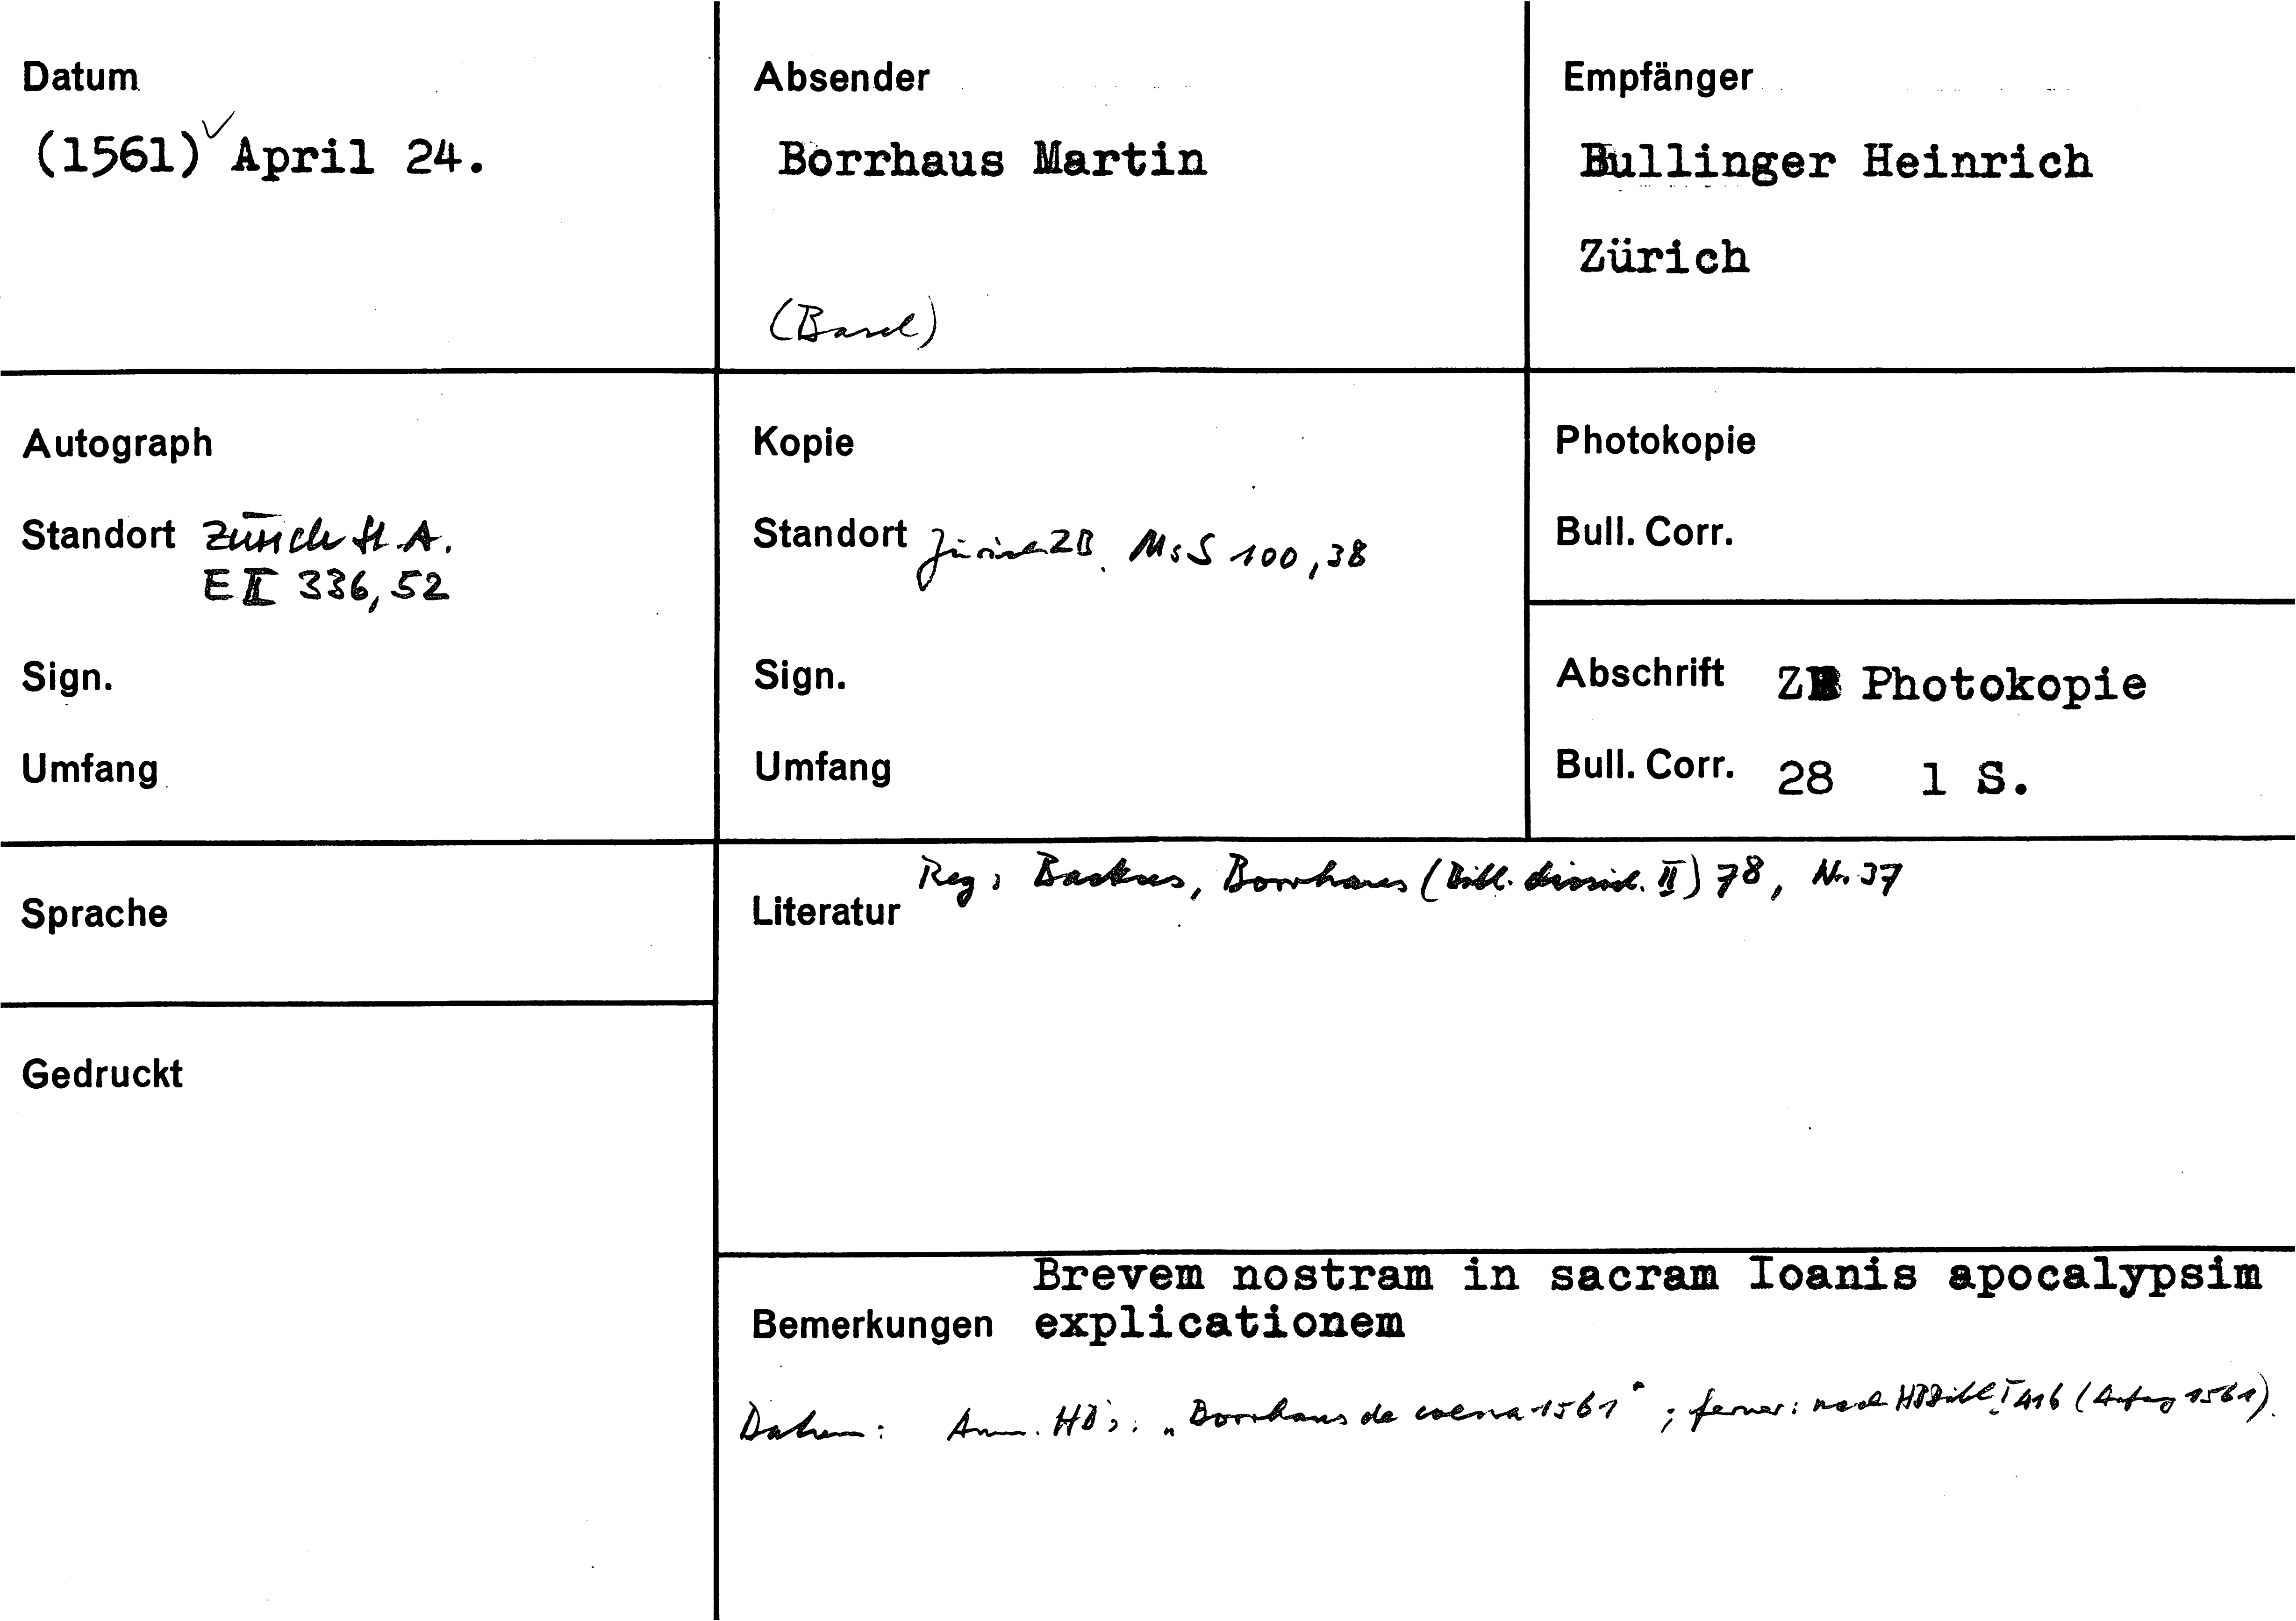 Datum
(1561) ✓ April 24.
Absender
Borrhaus Martin
(Basel)
Empfänger
Bullinger Heinrich
Zürich
Autograph
Standort Zürich StA.
E II 336, 52
Sign.
Umfang
Kopie
Standort Zürich ZB. Ms S 100, 38
Sign.
Umfang
Photokopie
Bull. Corr.
Abschrift ZB Photokopie
Bull. Corr. 28 1 S.
Sprache
Gedruckt
Literatur Reg: Backus, Borrhaus (Bibl. dissid. II) 78, Nr. 37
Bemerkungen Brevem nostram in sacram Ioanis apocalypsim
explicationem
Datum: Anm. HB's: „Borrhaus de coena 1561"; ferner: nach HBBibl. I 416 (Anfang 1561).